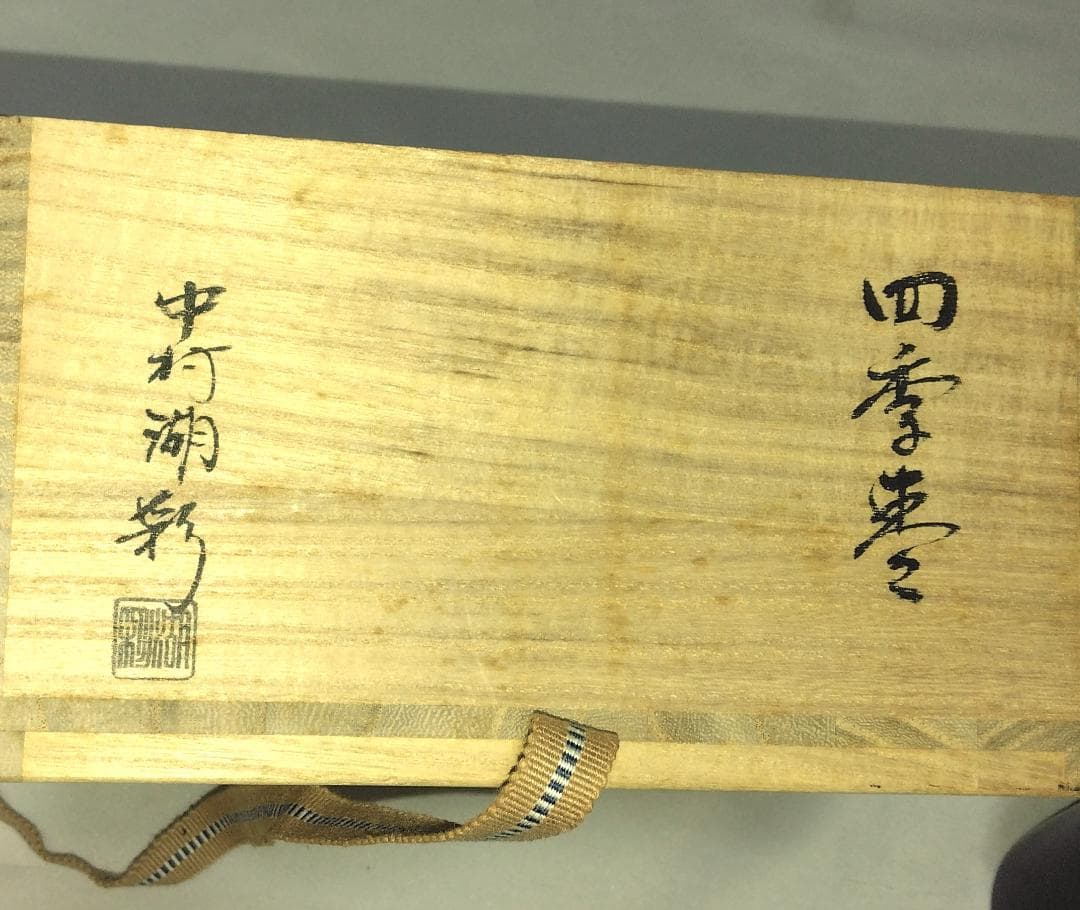 四季棗
中村湖彩